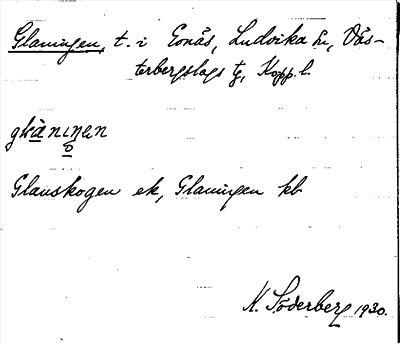 Glaningen, t. i Gonås, Ludvika sn, Väs-
terbergslags tg, Kopp. l.
glànıŋen
Glanskogen ek, Glaningen kb
K. Söderberg 1930.